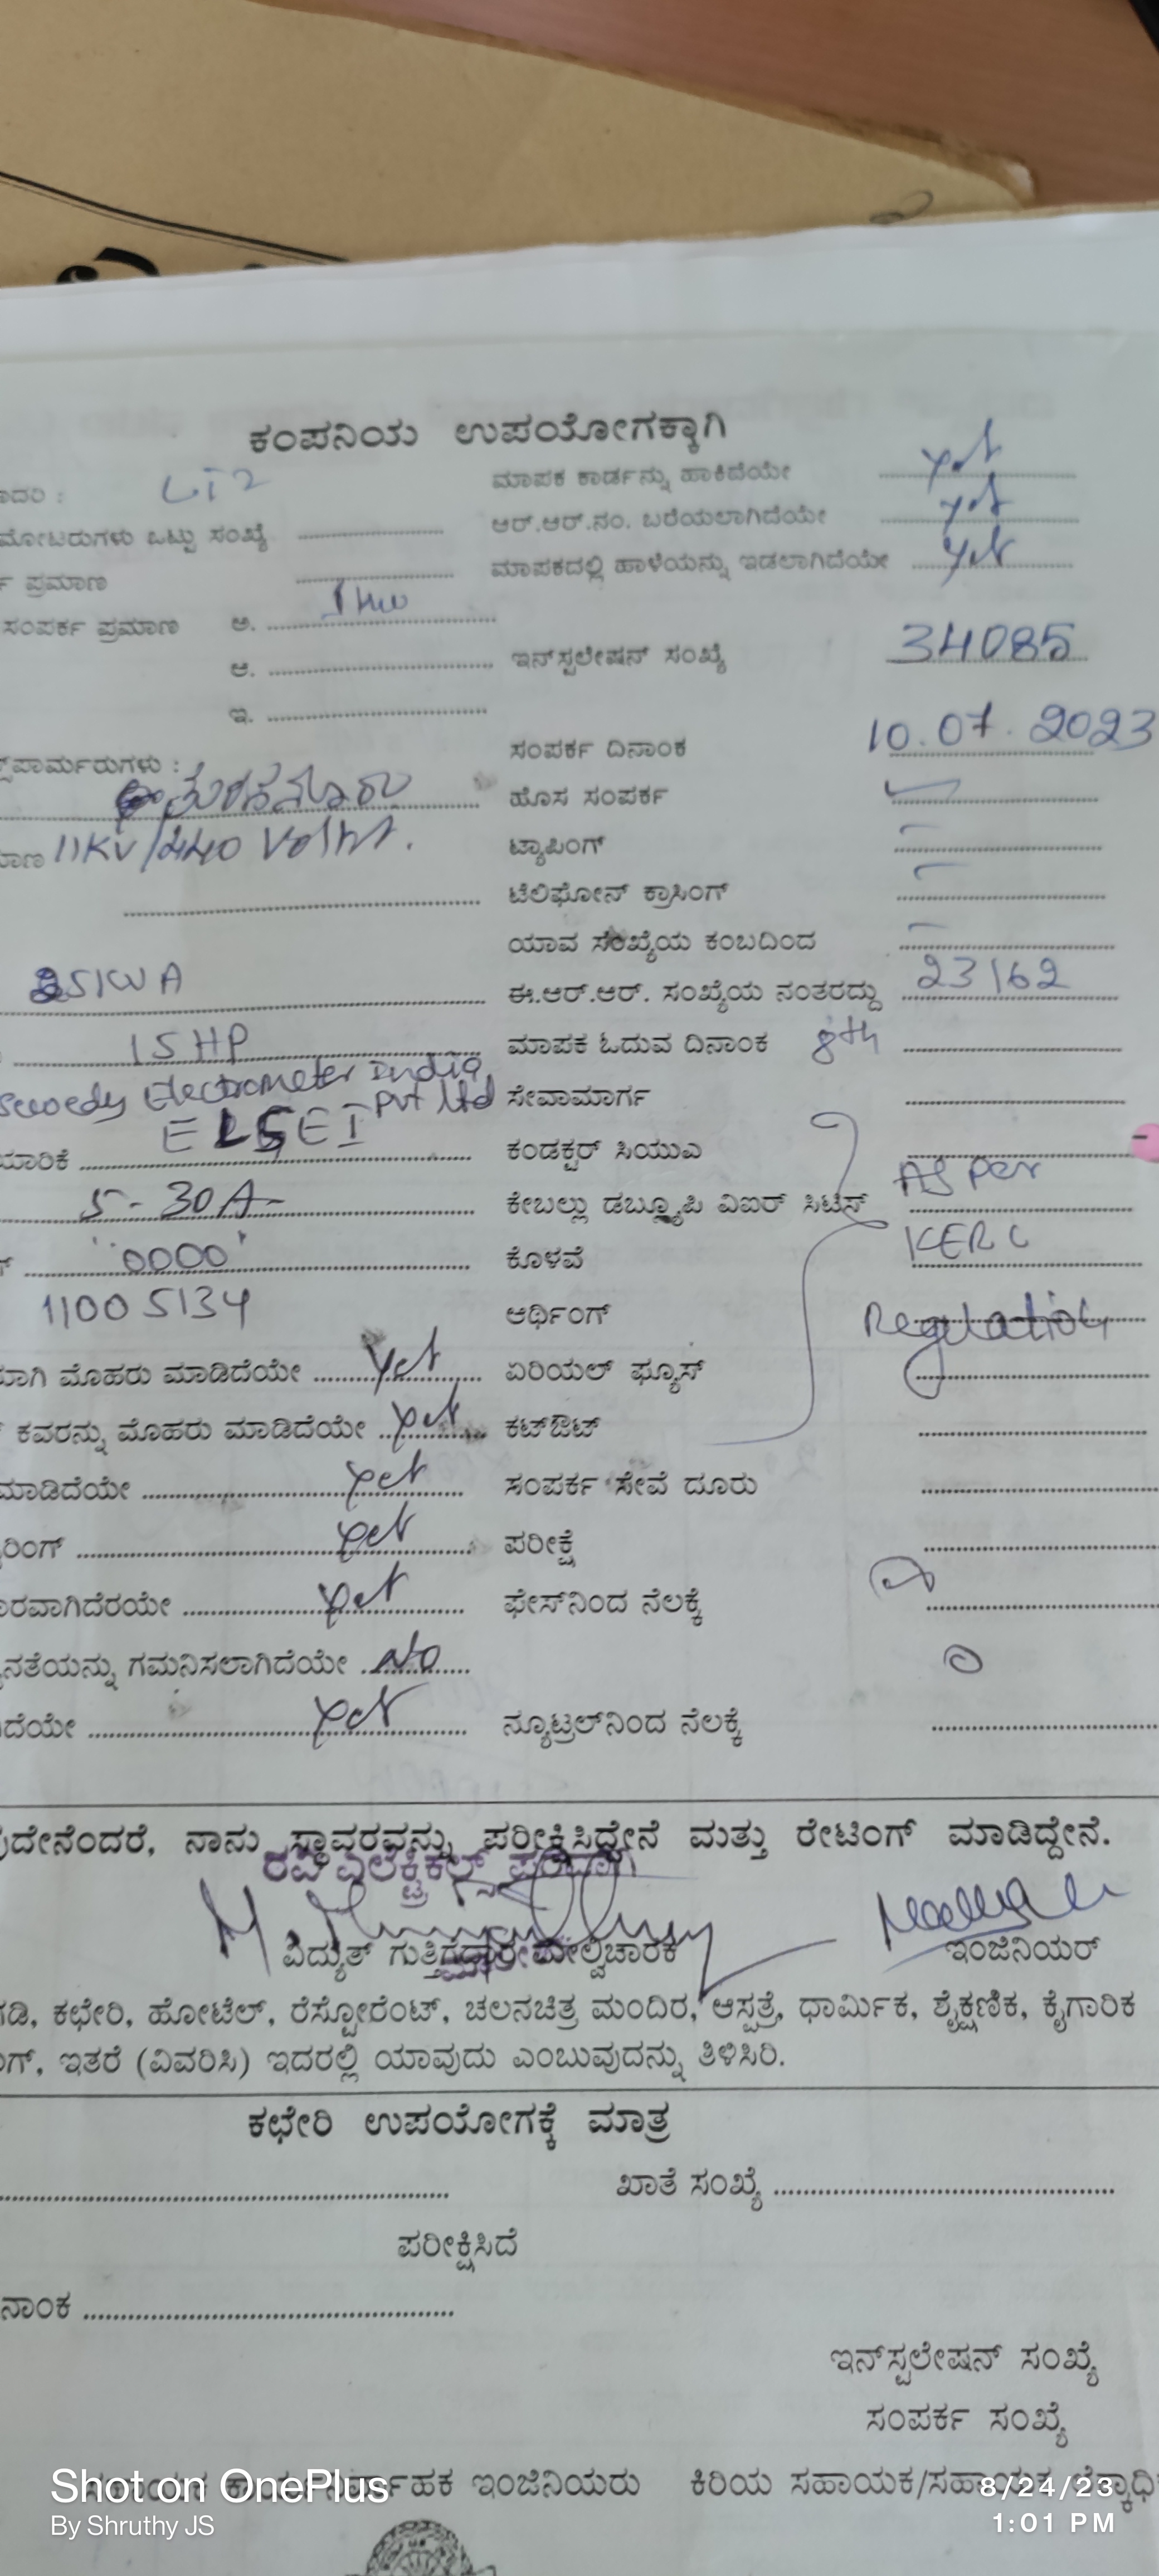 ಕಂಪನಿಯ ಉಪಯೋಗಕ್ಕಾಗಿ
ಮಾಪಕ ಕಾರ್ಡನ್ನು ಹಾಕಿದೆಯೇ yes
ಮೋಟರುಗಳು ಒಟ್ಟು ಸಂಖ್ಯೆ ಆರ್.ಆರ್.ನಂ. ಬರೆಯಲಾಗಿದೆಯೇ yes
ಪ್ರಮಾಣ ಮಾಪಕದಲ್ಲಿ ಹಾಳೆಯನ್ನು ಇಡಲಾಗಿದೆಯೇ yes
ಸಂಪರ್ಕ ಪ್ರಮಾಣ ಅ.
ಆ. ಇನ್‌ಸ್ಟಲೇಷನ್ ಸಂಖ್ಯೆ 34085
ಇ.
ಸಂಪರ್ಕ ದಿನಾಂಕ 10.07.2023
ಹೊಸ ಸಂಪರ್ಕ
11KV/440 Volts. ಟ್ಯಾಪಿಂಗ್
ಟೆಲಿಫೋನ್ ಕ್ರಾಸಿಂಗ್
ಯಾವ ಸಂಖ್ಯೆಯ ಕಂಬದಿಂದ
ಈ.ಆರ್.ಆರ್. ಸಂಖ್ಯೆಯ ನಂತರದ್ದು 23162
15HP ಮಾಪಕ ಓದುವ ದಿನಾಂಕ 8th
Electrometer India Pvt Ltd ಸೇವಾಮಾರ್ಗ
ELSEI ಕಂಡಕ್ಟರ್ ಸಿಯುಎ
5-30A- ಕೇಬಲ್ಲು ಡಬ್ಲ್ಯೂಪಿ ವಿಐಆರ್ ಸಿಟಿಸ್ AS Per
"0000" ಕೊಳವೆ KERC
11005134 ಆರ್ಥಿಂಗ್ Regulation
ಮೊಹರು ಮಾಡಿದೆಯೇ yes ಏರಿಯಲ್ ಫ್ಯೂಸ್
ಕವರನ್ನು ಮೊಹರು ಮಾಡಿದೆಯೇ yes ಕಟ್‌ಔಟ್
ಮಾಡಿದೆಯೇ yes ಸಂಪರ್ಕ ಸೇವೆ ದೂರು
yes ಪರೀಕ್ಷೆ
yes ಫೇಸ್‌ನಿಂದ ನೆಲಕ್ಕೆ
ಗಮನಿಸಲಾಗಿದೆಯೇ No
yes ನ್ಯೂಟ್ರಲ್‌ನಿಂದ ನೆಲಕ್ಕೆ
ನಾನು ಸ್ಥಾವರವನ್ನು ಪರೀಕ್ಷಿಸಿದ್ದೇನೆ ಮತ್ತು ರೇಟಿಂಗ್ ಮಾಡಿದ್ದೇನೆ.
ವಿದ್ಯುತ್ ಗುತ್ತಿಗೆದಾರರ ಮೇಲ್ವಿಚಾರಕ ಇಂಜಿನಿಯರ್
ಕಛೇರಿ, ಹೋಟೆಲ್, ರೆಸ್ಟೋರೆಂಟ್, ಚಲನಚಿತ್ರ ಮಂದಿರ, ಆಸ್ಪತ್ರೆ, ಧಾರ್ಮಿಕ, ಶೈಕ್ಷಣಿಕ, ಕೈಗಾರಿಕ
ಇತರೆ (ವಿವರಿಸಿ) ಇದರಲ್ಲಿ ಯಾವುದು ಎಂಬುವುದನ್ನು ತಿಳಿಸಿರಿ.
ಕಛೇರಿ ಉಪಯೋಗಕ್ಕೆ ಮಾತ್ರ
ಖಾತೆ ಸಂಖ್ಯೆ
ಪರೀಕ್ಷಿಸಿದೆ
ಇನ್‌ಸ್ಟಲೇಷನ್ ಸಂಖ್ಯೆ
ಸಂಪರ್ಕ ಸಂಖ್ಯೆ
ಇಂಜಿನಿಯರು ಕಿರಿಯ ಸಹಾಯಕ/ಸಹಾಯಕ
Shot on OnePlus
By Shruthy JS
8/24/23
1:01 PM